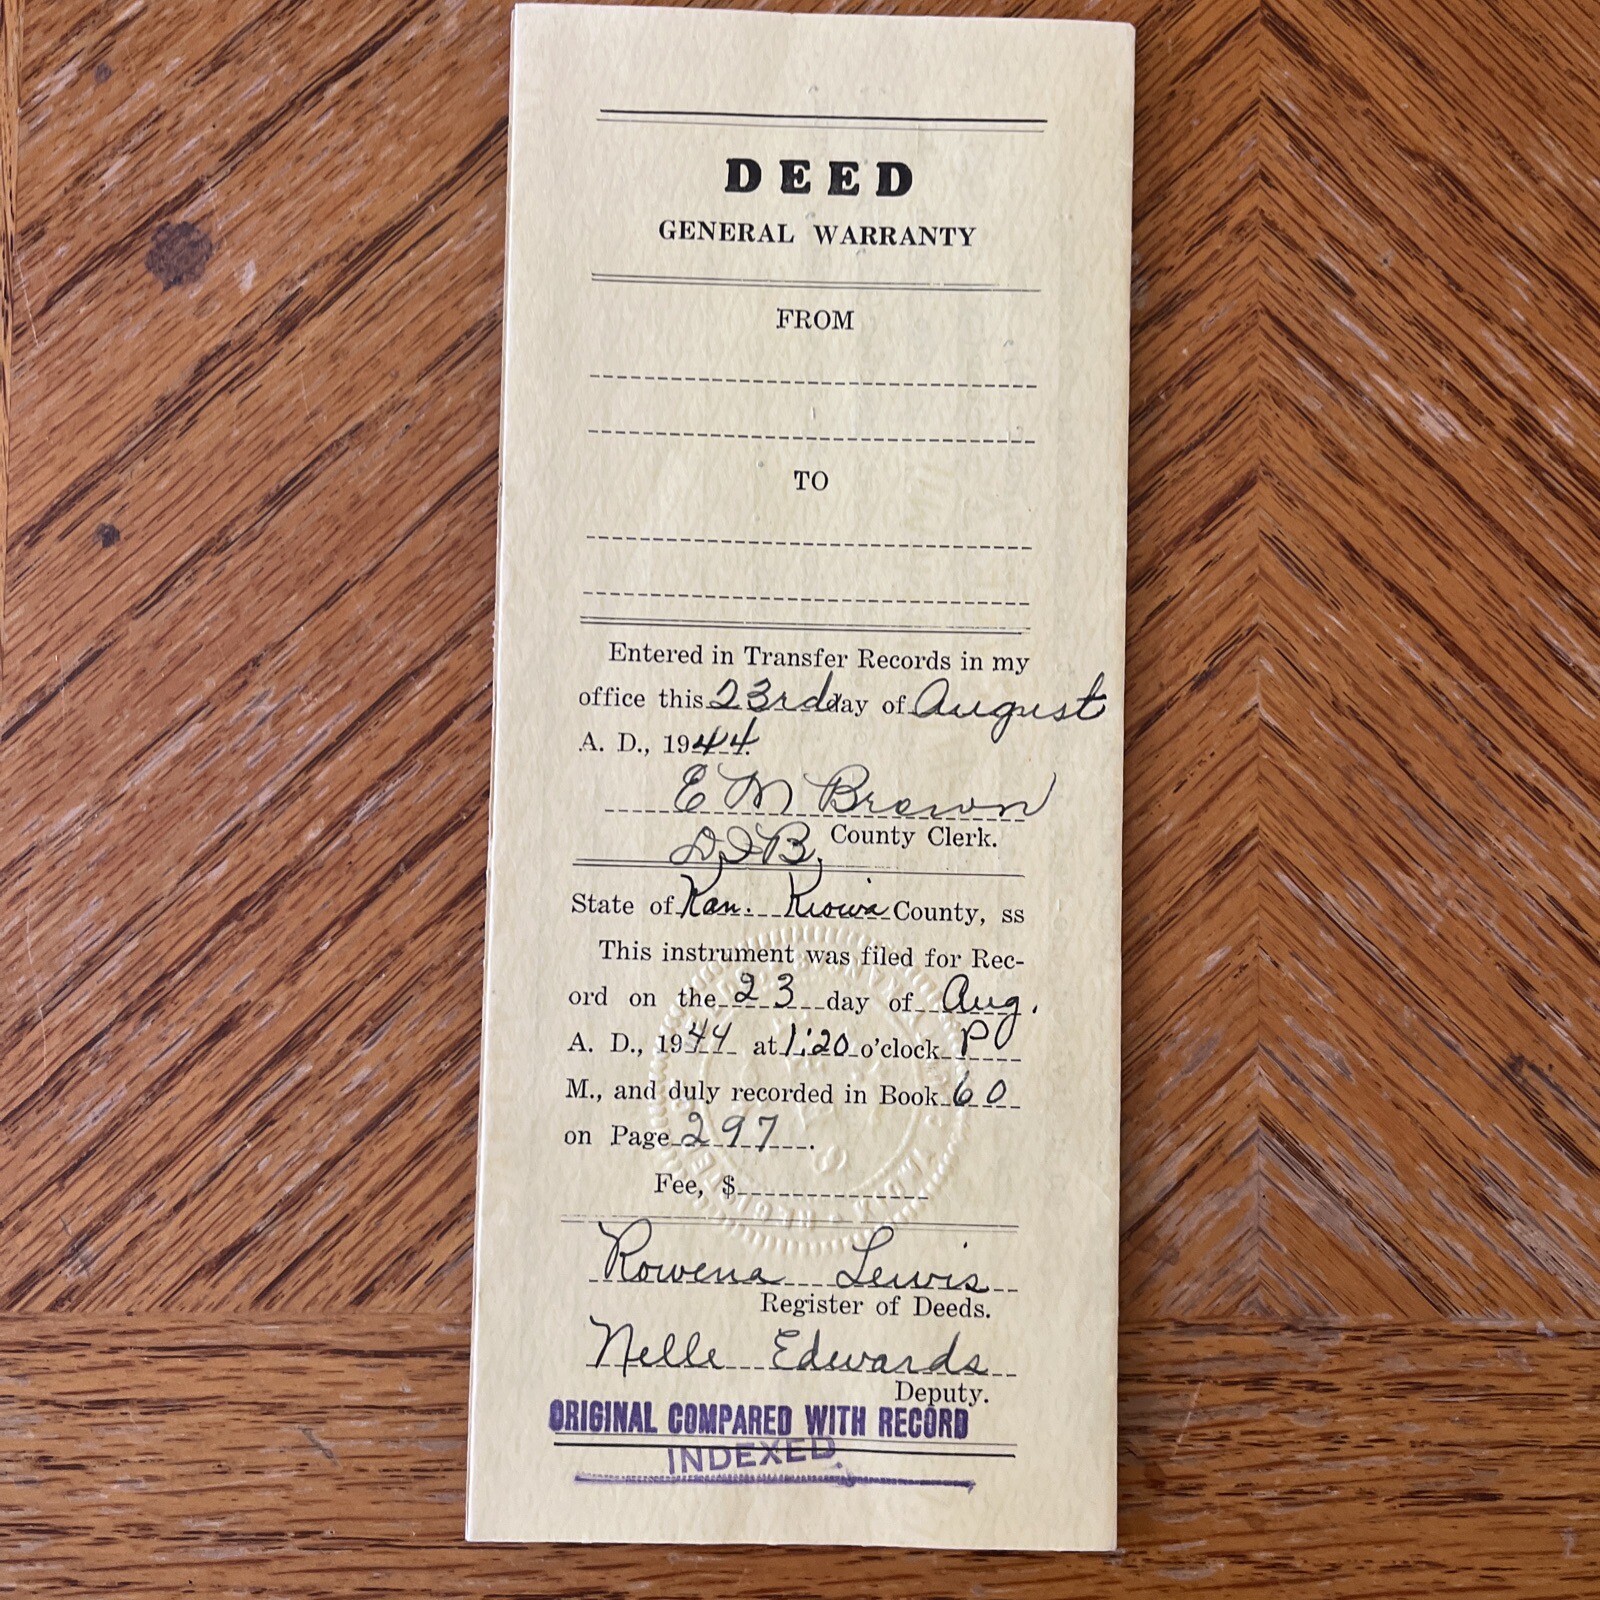 DEED
GENERAL WARRANTY
FROM
TO
Entered in Transfer Records in my
office this 23rd day of August
A. D., 1944
E M Brown
D.I.B. County Clerk.
State of Kan. Kiowa County, ss
This instrument was filed for Rec-
ord on the 23 day of Aug.
A. D., 1944 at 1:20 o'clock P
M., and duly recorded in Book 60
on Page 297.
Fee, $
Rowena Lewis
Register of Deeds.
Nelle Edwards
Deputy.
ORIGINAL COMPARED WITH RECORD
INDEXED.